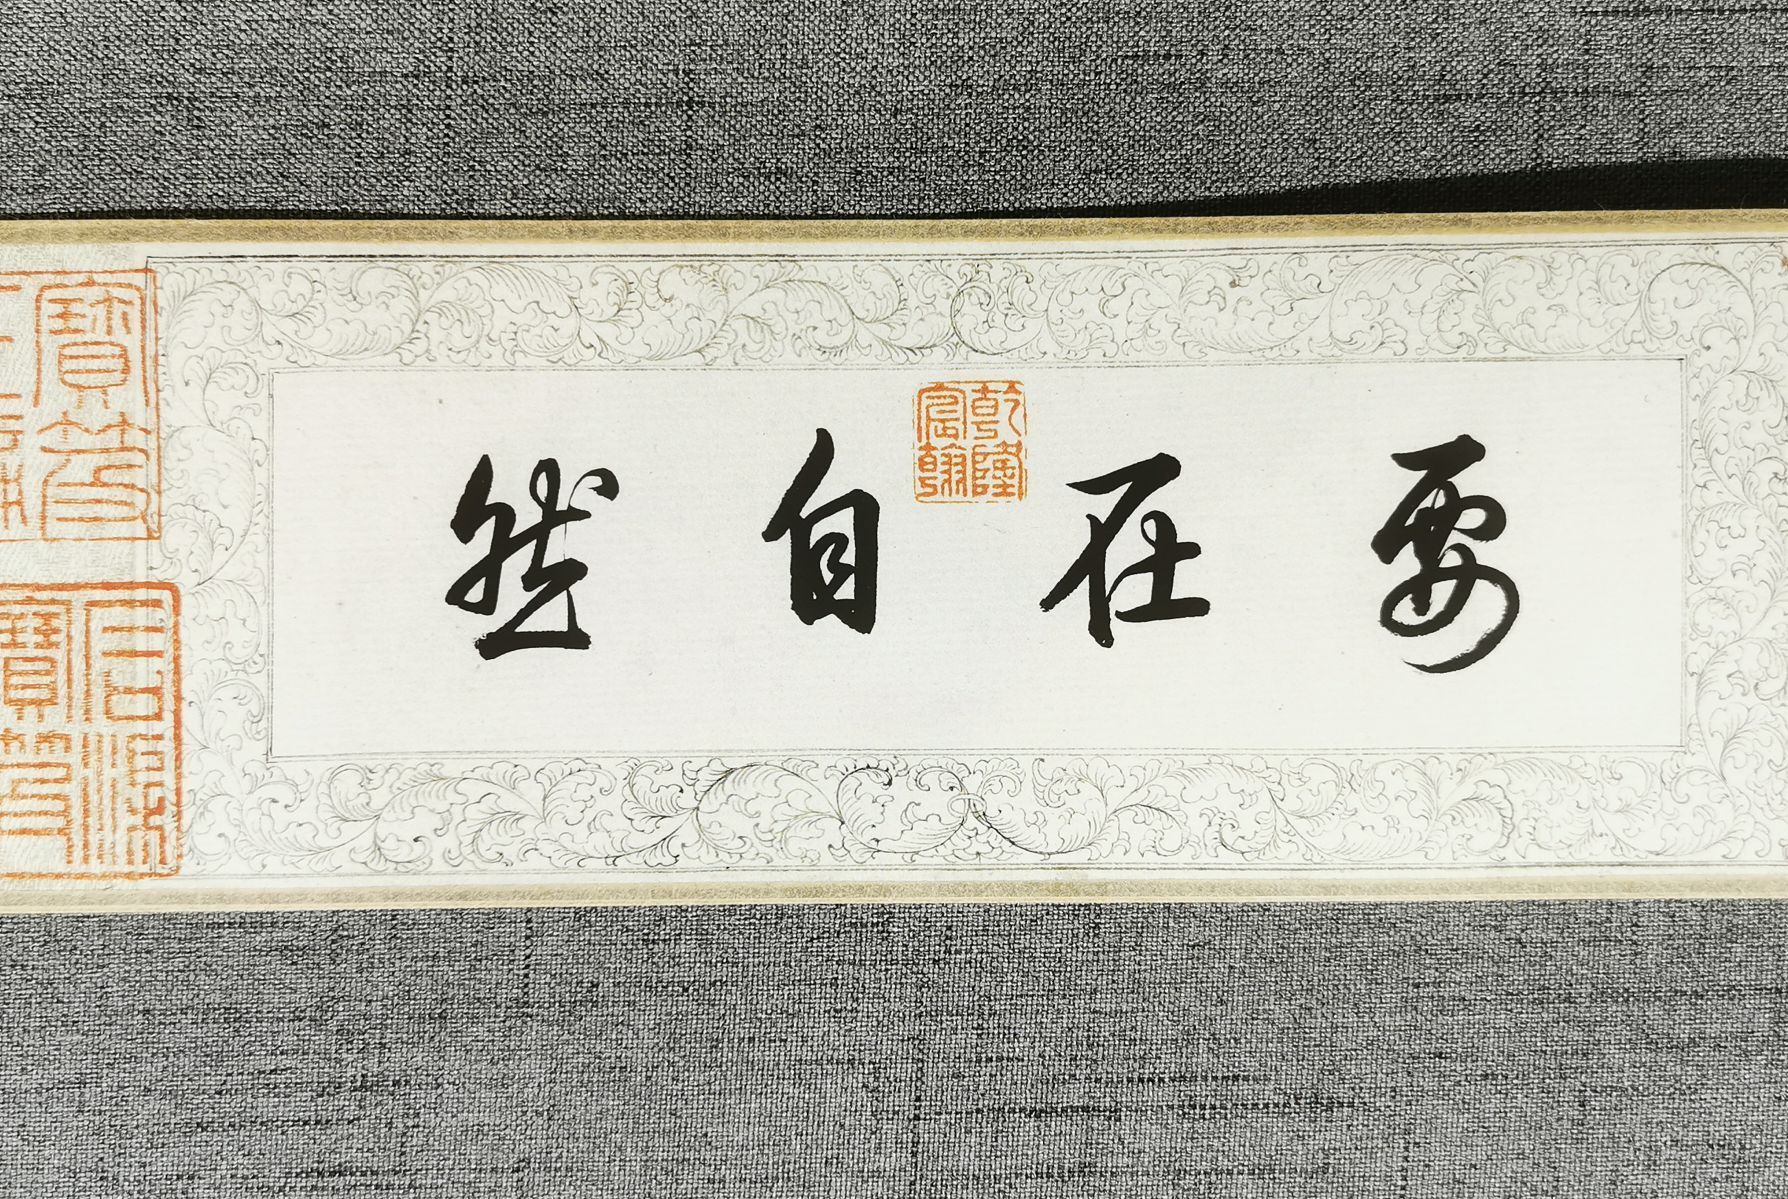 要在自然
乾隆宸翰